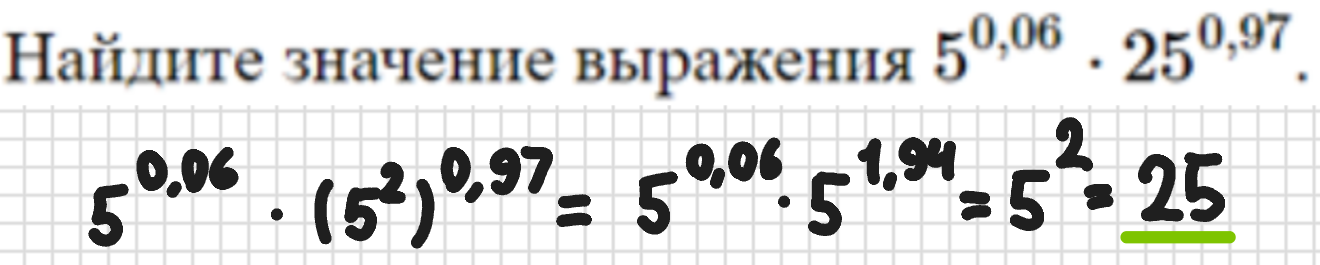 Найдите значение выражения 5^{0,06} · 25^{0,97}.
5^{0,06} · (5^2)^{0,97} = 5^{0,06} · 5^{1,94} = 5^2 = 25